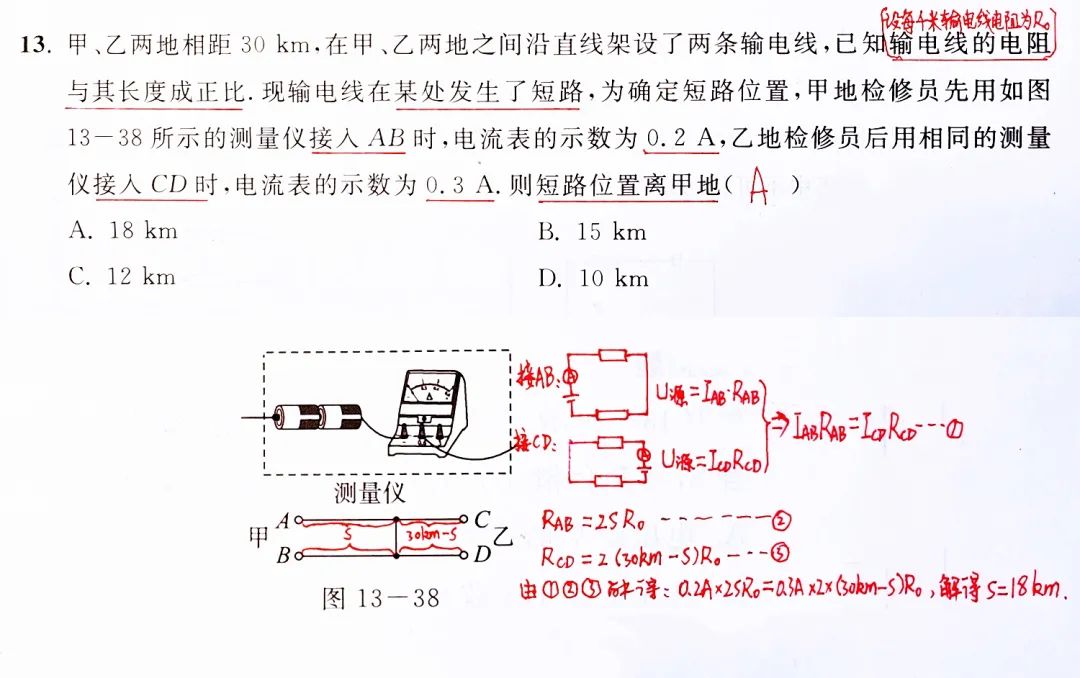 (设每千米输电线电阻为R₀)
13. 甲、乙两地相距 30 km,在甲、乙两地之间沿直线架设了两条输电线,已知输电线的电阻
与其长度成正比.现输电线在某处发生了短路,为确定短路位置,甲地检修员先用如图
13-38 所示的测量仪接入 AB 时,电流表的示数为 0.2 A,乙地检修员后用相同的测量
仪接入 CD 时,电流表的示数为 0.3 A.则短路位置离甲地( A )
A. 18 km B. 15 km
C. 12 km D. 10 km
接AB: A U源=I_AB·R_AB
⇒ I_AB R_AB=I_CD R_CD---①
接CD: A U源=I_CD R_CD
A
测量仪
甲 A S 30km-S C 乙
B D
图 13-38
R_AB=2SR₀ -------②
R_CD=2(30km-S)R₀---③
由①②③解得:0.2A×2SR₀=0.3A×2×(30km-S)R₀,解得S=18km.